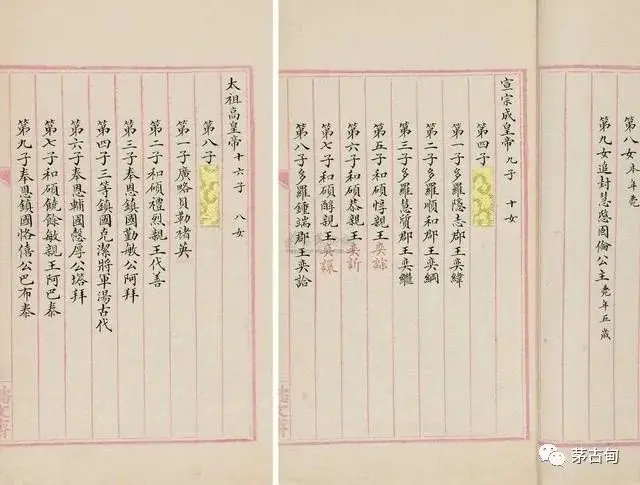 太祖高皇帝 十六子 八女
第八子
第一子廣略貝勒褚英
第二子和碩禮烈親王代善
第三子奉恩鎮國勤敏公阿拜
第四子三等鎮國克潔將軍湯古代
第六子奉恩輔國愨厚公塔拜
第七子和碩饒餘敏親王阿巴泰
第九子奉恩鎮國恪僖公巴布泰
第八女本年薨
第九女追封慧愍固倫公主薨年五歲
宣宗成皇帝 九子 十女
第四子
第一子多羅隱志郡王奕緯
第二子多羅順和郡王奕綱
第三子多羅慧質郡王奕繼
第五子和碩惇親王奕誴
第六子和碩恭親王奕訢
第七子和碩醇親王奕譞
第八子多羅鍾端郡王奕詥
茅古甸